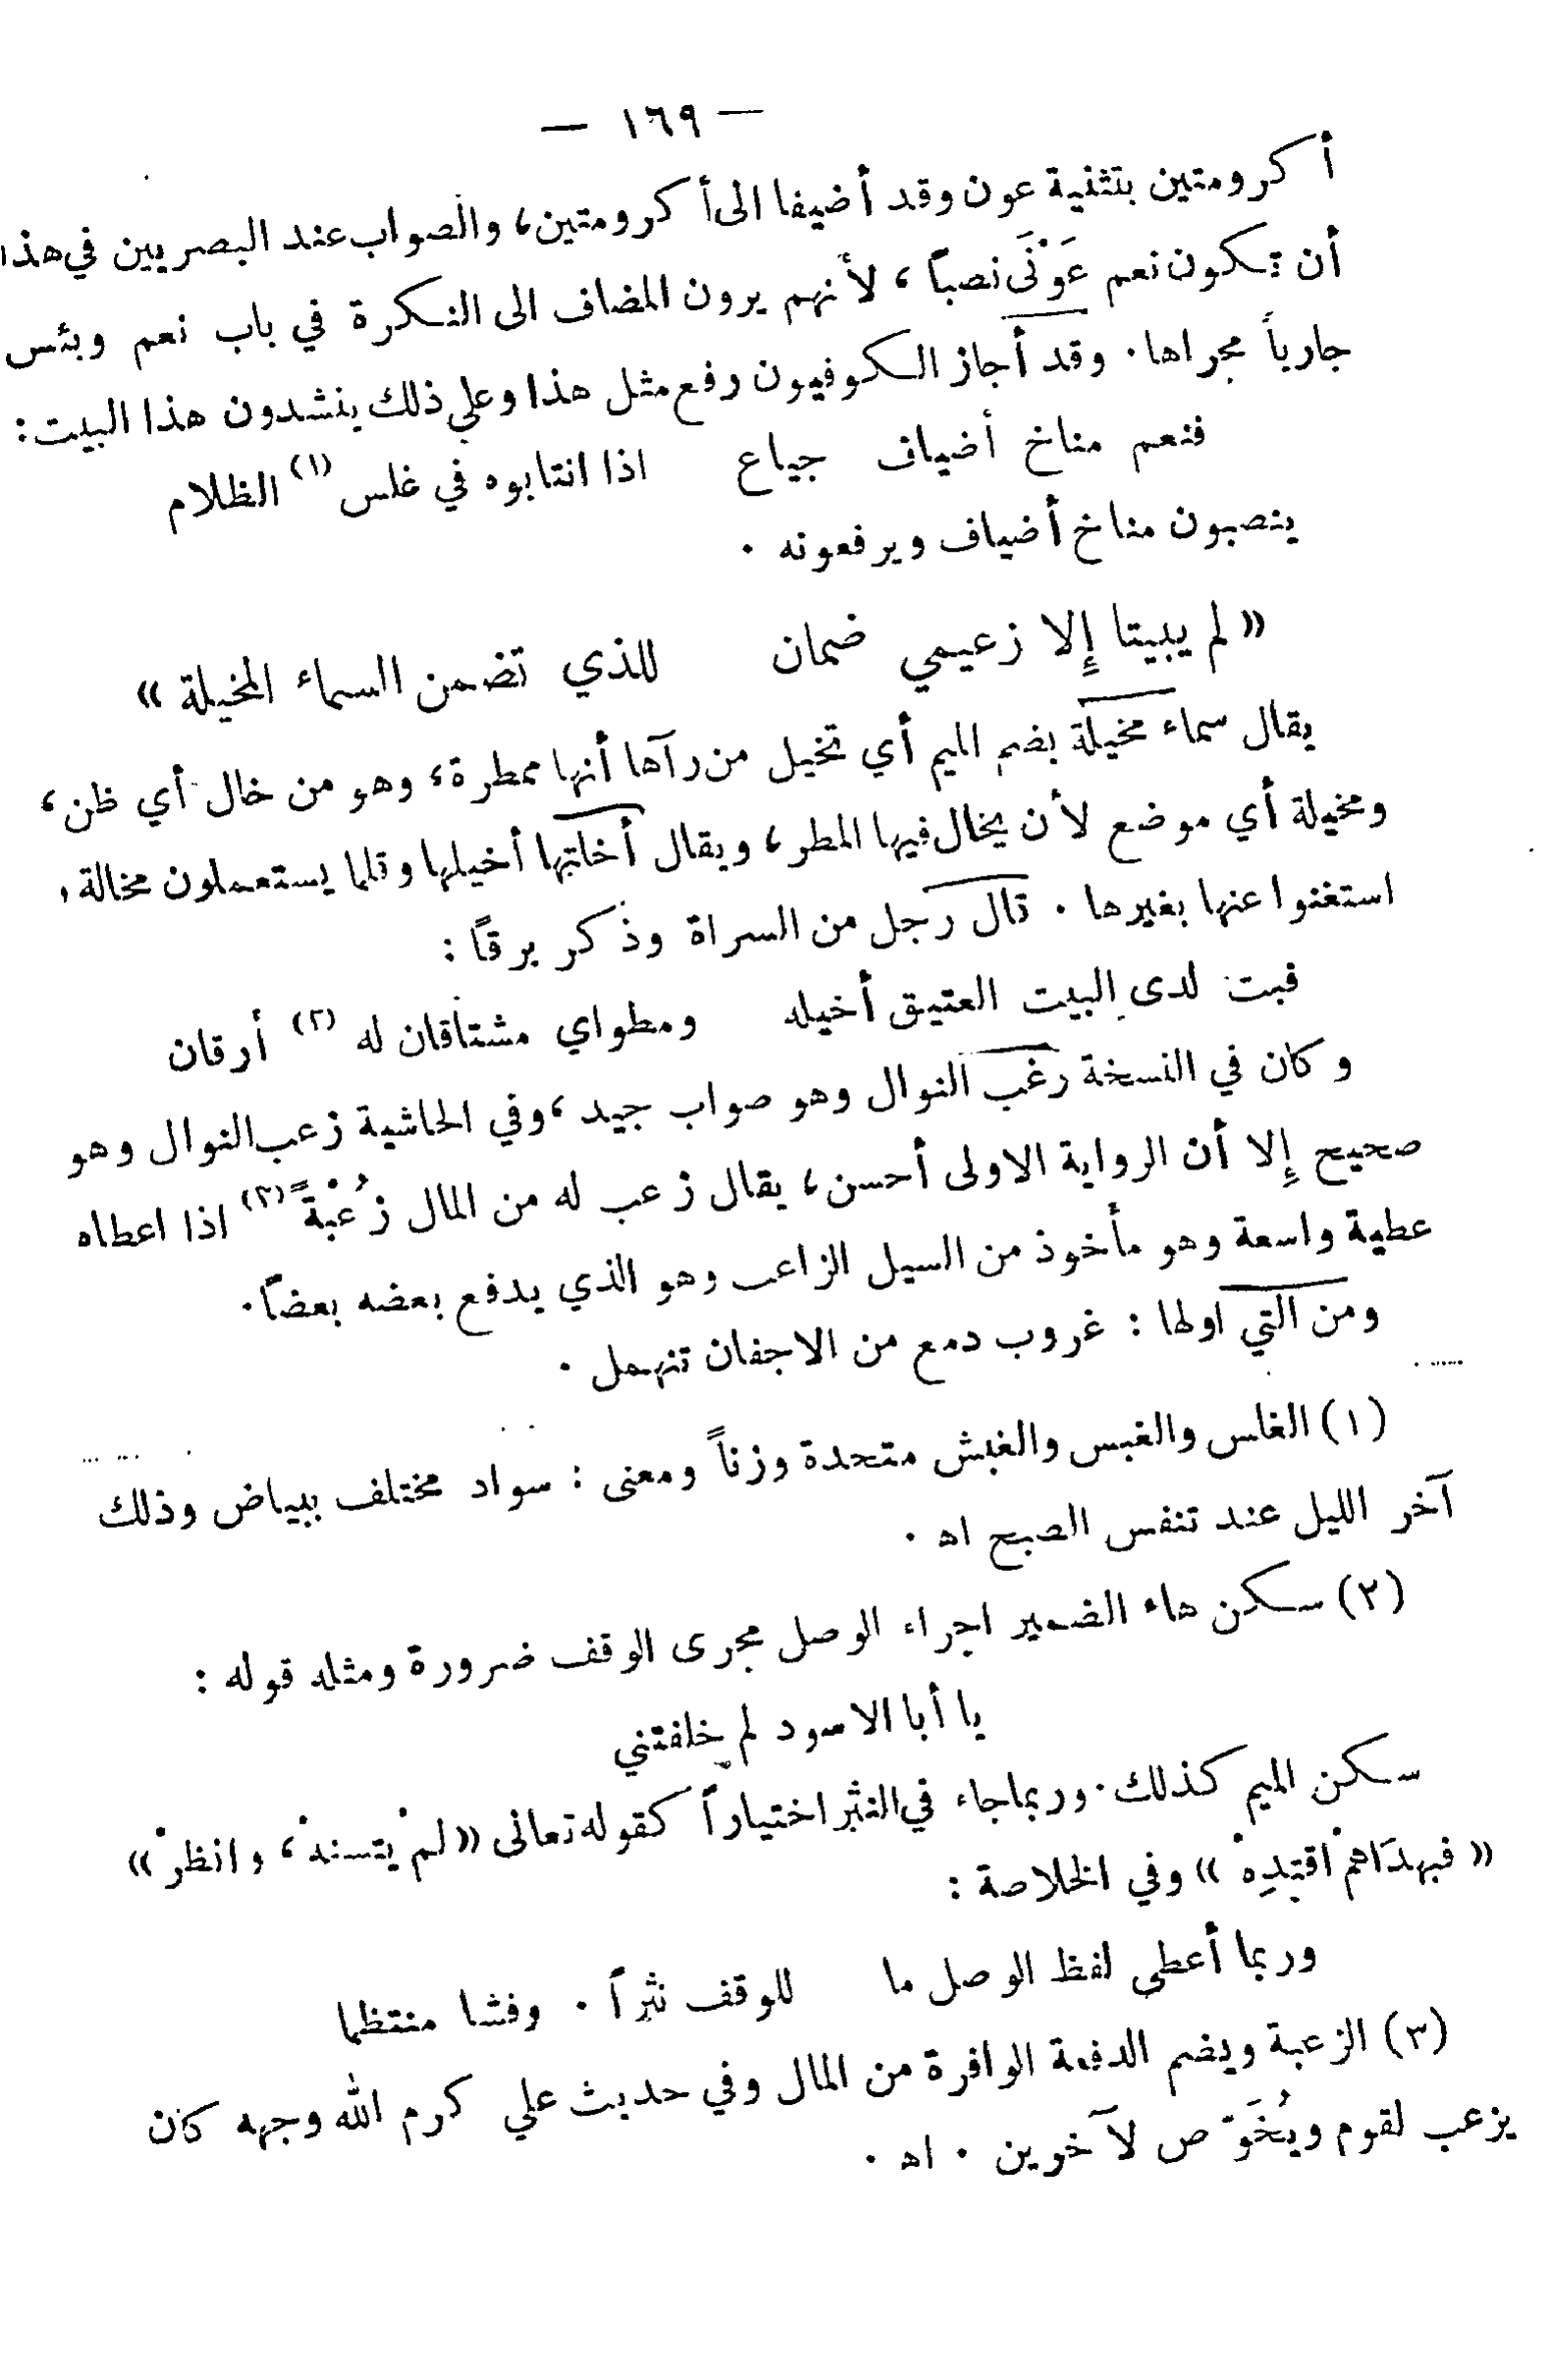 — ١٦٩ —
أكرومتين بتثنية عون وقد أضيفا الى أكرومتين، والصواب عند البصريين في هذا
أن تكون نعم عَوْنَي نصباً، لأنهم يرون المضاف الى النكرة في باب نعم وبئس
جارياً مجراها. وقد أجاز الكوفيون رفع مثل هذا وعلى ذلك ينشدون هذا البيت:
فنعم مناخ أضياف جياع اذا انتابوه في غلس (١) الظلام
ينصبون مناخ أضياف ويرفعونه .
« لم يبيتا إلا زعيمي ضمان للذي تضمن السماء المخيلة »
يقال سماء مخيلة بضم الميم أي تخيل من رآها أنها ممطرة، وهو من خال أي ظن،
ومخيلة أي موضع لأن يخال فيها المطر، ويقال أخلتها أخيلها وقلما يستعملون مخالة،
استغنوا عنها بغيرها . قال رجل من السراة وذكر برقاً :
فبت لدى البيت العتيق أخيله ومطواي مشتاقان له (٢) أرقان
وكان في النسخة رغب النوال وهو صواب جيد، وفي الحاشية زعب النوال وهو
صحيح إلا أن الرواية الاولى أحسن، يقال زعب له من المال زُعْبةً (٣) اذا اعطاه
عطية واسعة وهو مأخوذ من السيل الزاعب وهو الذي يدفع بعضه بعضاً.
ومن التي اولها : غروب دمع من الاجفان تنهمل .
(١) الغلس والغبس والغبش متحدة وزناً ومعنى : سواد مختلف ببياض وذلك
آخر الليل عند تنفس الصبح اه .
(٢) سكن هاء الضمير اجراء الوصل مجرى الوقف ضرورة ومثله قوله :
يا أبا الاسود لم خلفتني
سكن الميم كذلك. وربما جاء في النثر اختياراً كقوله تعالى « لمْ يتسنهْ، وانظرْ »
« فبهدَاهمْ اقتدِهْ » وفي الخلاصة :
وربما أعطي لفظ الوصل ما للوقف نثراً . وفشا منتظما
(٣) الزعبة ويضم الدفعة الوافرة من المال وفي حديث علي كرم الله وجهه كان
يزعب لقوم ويُخَوّص لآخرين . اه .